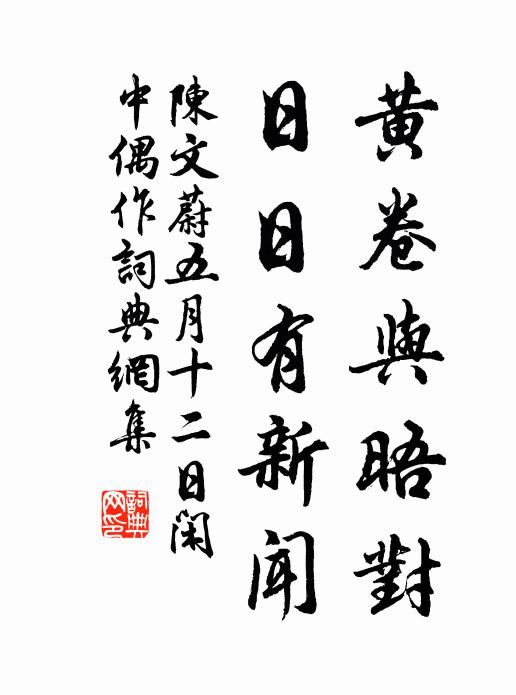 黃卷與晤對
日日有新聞
陳文蔚五月十二日閑
中偶作詞典網集
詞典網印